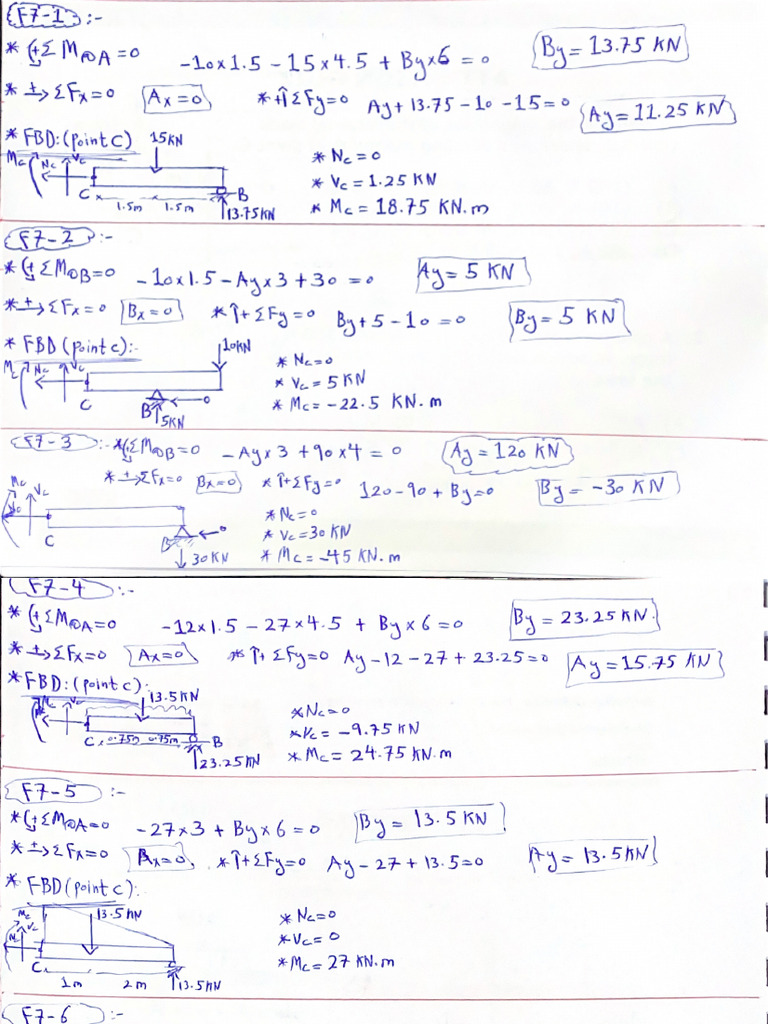 F7-1 :-
* (+ ΣM@A=0 -10×1.5 -15×4.5 + By×6 = 0 By = 13.75 KN
* +→ ΣFx=0 Ax=0 * +↑ ΣFy=0 Ay + 13.75 -10 -15=0 Ay = 11.25 KN
* FBD: (point C) 15KN
Mc Nc Vc * Nc = 0
C B * Vc = 1.25 KN
1.5m 1.5m 13.75KN * Mc = 18.75 KN.m
F7-2 :-
* (+ ΣM@B=0 -10×1.5 -Ay×3 +30 = 0 Ay = 5 KN
* +→ ΣFx=0 Bx=0 *↑+ ΣFy=0 By+5-10=0 By = 5 KN
* FBD (point C):- 10KN
Mc Nc Vc * Nc=0
* Vc = 5 KN
C B 0 * Mc = -22.5 KN.m
5KN
F7-3 :- *(+ ΣM@B=0 -Ay×3 +90×4 = 0 Ay = 120 KN
* +→ ΣFx=0 Bx=0 * ↑+ΣFy=0 120-90 + By=0 By = -30 KN
Mc Vc
* Nc=0
C B 0 * Vc=30 KN
30KN * Mc = -45 KN.m
F7-4 :-
* (+ ΣM@A=0 -12×1.5 -27×4.5 + By×6 = 0 By = 23.25 KN.
* +→ ΣFx=0 Ax=0 * ↑+ ΣFy=0 Ay-12-27+23.25=0 Ay = 15.75 KN
* FBD: (point C): 13.5KN
Vc * Nc=0
C 0.75m 0.75m B * Vc = -9.75 KN
23.25KN * Mc = 24.75 KN.m
F7-5 :-
* (+ ΣM@A=0 -27×3 + By×6 = 0 By = 13.5 KN
* +→ ΣFx=0 Ax=0 * ↑+ΣFy=0 Ay -27 + 13.5=0 Ay = 13.5KN
* FBD (point C):
Mc 13.5KN * Nc=0
Nc Vc * Vc = 0
C * Mc = 27 KN.m
1m 2m 13.5KN
F7-6 :-